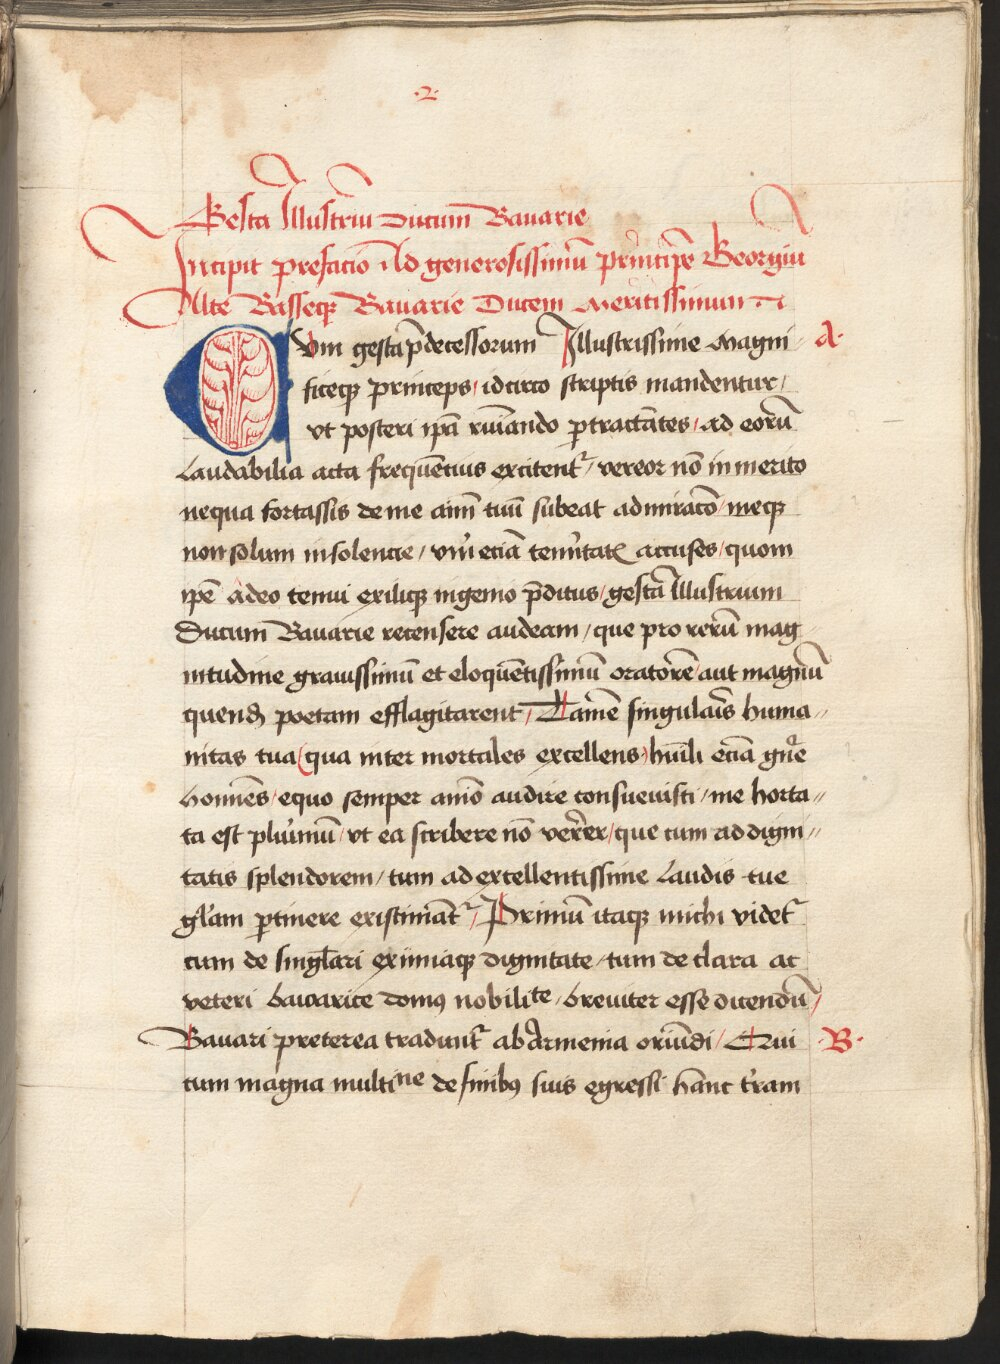 ·2·
Gesta Illustriu Ducum Bavarie
Incipit prefacio Ad generosissimū principē Georgiū
Alte Basseqꝫ Bavarie Ducem Meritissimum
CVm gesta p̄decessorum Illustrissime Magni A·
ficeqꝫ princeps / idcirco scriptis mandentur /
vt posteri ip̄a ruīando ꝑtractātes / ad eorū
Laudabilia acta frequētius excitent᷑ / vereor nō inmerito
nequa fortassis de me aīm tuū subeat admiracō / meqꝫ
non solum insolencie / vm̄ eciā temītatꝭ accuses / quom
ip̄e adeo tenui exiliqꝫ ingenio p̄ditus / gesta Illustrium
Ducum Bavarie recensere audeam / que pro rerū mag
nitudine gravissimū et eloquētissimū oratorē aut magnū
quend̄ poetam efflagitarent / Tamē singulaīs huma //
nitas tua (qua inter mortales excellens) hūili eciā gn̄e
homīes / equo semper aīo audire consuevisti / me horta //
ta est plurimū / vt ea scribere nō verērer / que cum ad digni //
tatis splendorem / tum ad excellentissime Laudis tue
gl̄am ꝑtinere existimāt᷑ / Primū itaqꝫ michi videt᷑
cum de singl̄ari eximiaqꝫ dignitate / tum de clara ac
veteri bavarice domꝰ nobilite / breviter esse dicendū /
Bavari preterea tradunt᷑ ab Armenia oriūdi / Qui ·B·
cum magna multine de finibꝰ suis egressi hanc t̄ram